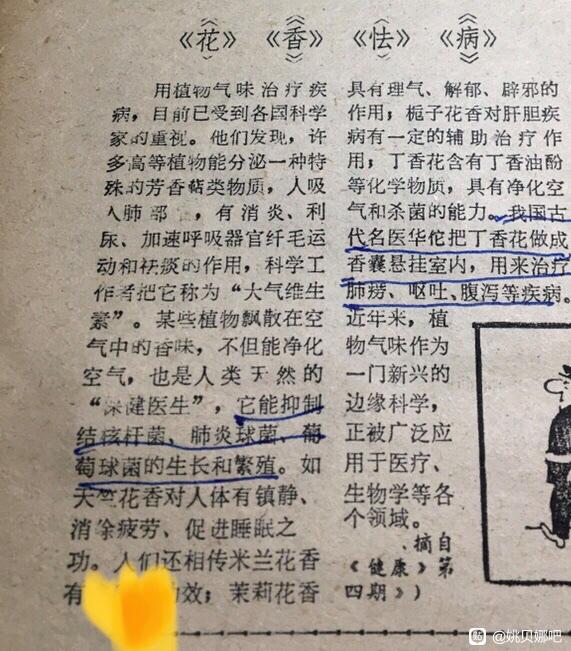 《花》《香》《怯》《病》
用植物气味治疗疾
病，目前已受到各国科学
家的重视。他们发现，许
多高等植物能分泌一种特
殊的芳香萜类物质，人吸
入肺部，有消炎、利
尿、加速呼吸器官纤毛运
动和祛痰的作用，科学工
作者把它称为“大气维生
素”。某些植物飘散在空
气中的香味，不但能净化
空气，也是人类天然的
“保健医生”，它能抑制
结核杆菌、肺炎球菌、葡
萄球菌的生长和繁殖。如
天竺花香对人体有镇静、
消除疲劳、促进睡眠之
功。人们还相传米兰花香
有功效；茉莉花香
具有理气、解郁、辟邪的
作用；栀子花香对肝胆疾
病有一定的辅助治疗作
用；丁香花含有丁香油酚
等化学物质，具有净化空
气和杀菌的能力。我国古
代名医华佗把丁香花做成
香囊悬挂室内，用来治疗
肺痨、呕吐、腹泻等疾病。
近年来，植
物气味作为
一门新兴的
边缘科学，
正被广泛应
用于医疗、
生物学等各
个领域。
（摘自
《健康》第
四期》）
贴 @姚贝娜吧